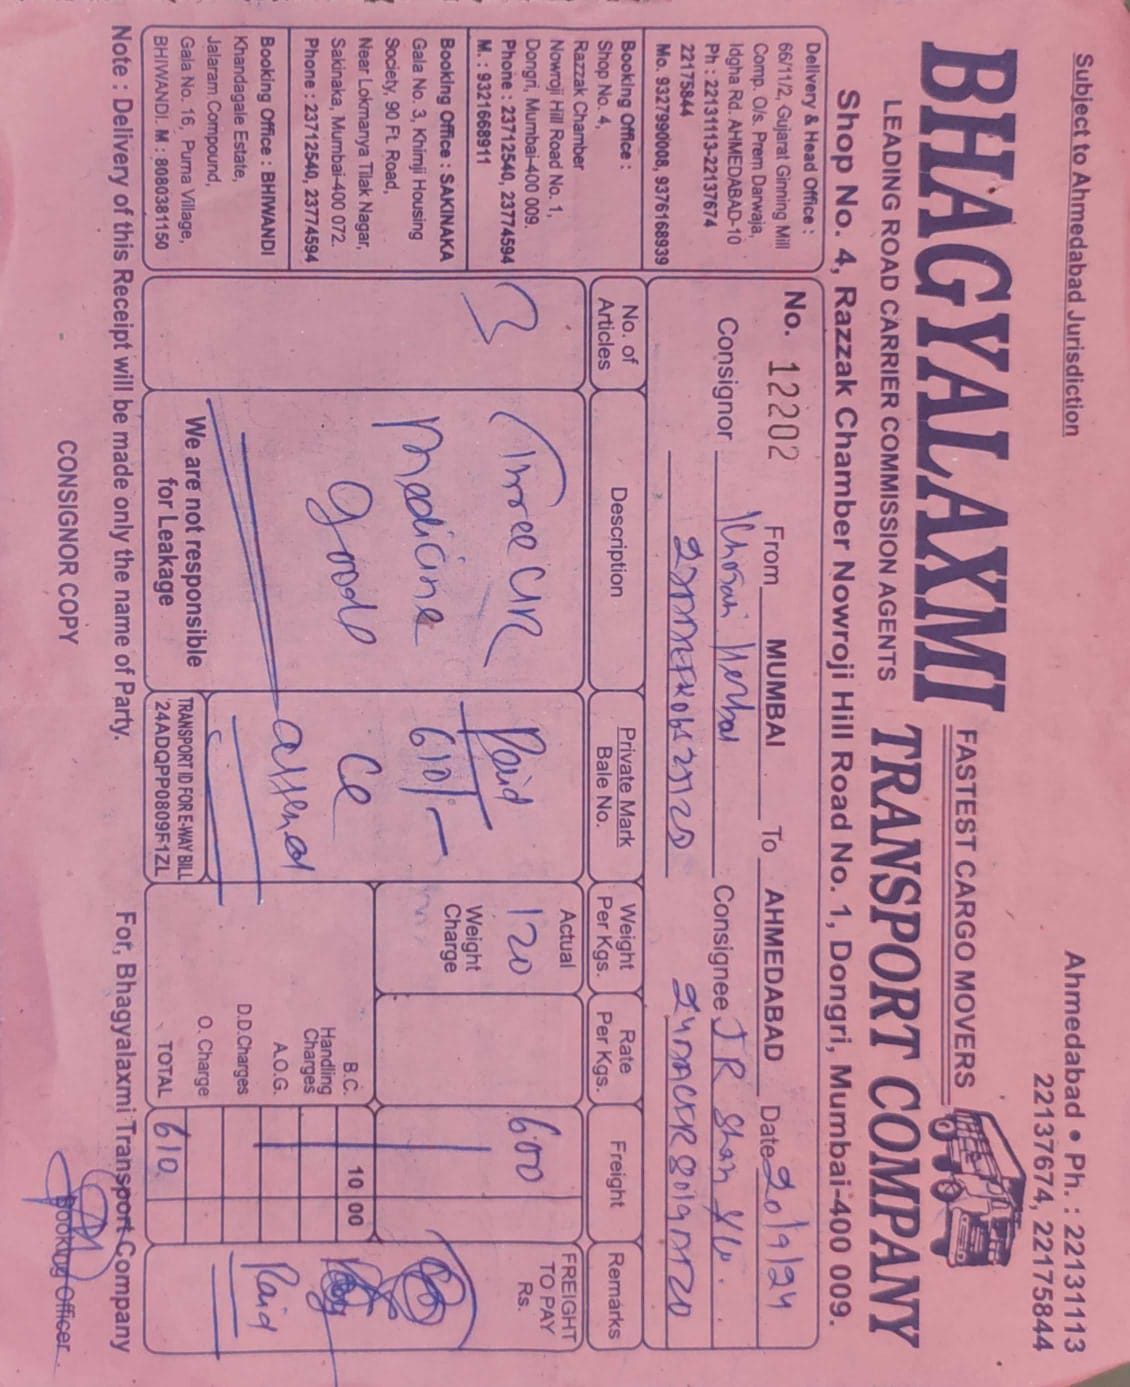 Subject to Ahmedabad Jurisdiction
Ahmedabad • Ph. : 22131113
22137674, 22175844
BHAGYALAXMI
FASTEST CARGO MOVERS
TRANSPORT COMPANY
LEADING ROAD CARRIER COMMISSION AGENTS
Shop No. 4, Razzak Chamber Nowroji Hill Road No. 1, Dongri, Mumbai-400 009.
Delivery & Head Office :
66/11/2, Gujarat Ginning Mill
Comp. O/s. Prem Darwaja,
Idgha Rd. AHMEDABAD-10
Ph : 22131113-2213674
22175844
Mo. 9327990008, 9376168939
Booking Office :
Shop No. 4,
Razzak Chamber
Nowroji Hill Road No. 1,
Dongri, Mumbai-400 009.
Phone : 23712540, 23774594
M. : 9321668911
Booking Office : SAKINAKA
Gala No. 3, Khimji Housing
Society, 90 Ft. Road,
Near Lokmanya Tilak Nagar,
Sakinaka, Mumbai-400 072.
Phone : 23712540, 23774594
Booking Office : BHIWANDI
Khandagale Estate,
Jalaram Compound,
Gala No. 16, Purna Village,
BHIWANDI. M : 8080381150
No. 12202 From MUMBAI To AHMEDABAD Date 20/9/24
Consignor Herbal Consignee J R Shah
No. of Articles
Description
Private Mark
Bale No.
Weight Per Kgs.
Rate Per Kgs.
Freight
Remarks
3
Three
medicine
goods
We are not responsible
for Leakage
Paid
610/-
TRANSPORT ID FOR E-WAY BILL
24ADQPP0809F1ZL
Actual
120
Weight
Charge
600
B.C. 10 00
Handling
Charges
A.O.G.
D.D.Charges
O. Charge
TOTAL 610
FREIGHT
TO PAY
Rs.
Paid
Note : Delivery of this Receipt will be made only the name of Party.
For, Bhagyalaxmi Transport Company
CONSIGNOR COPY
Booking Officer.